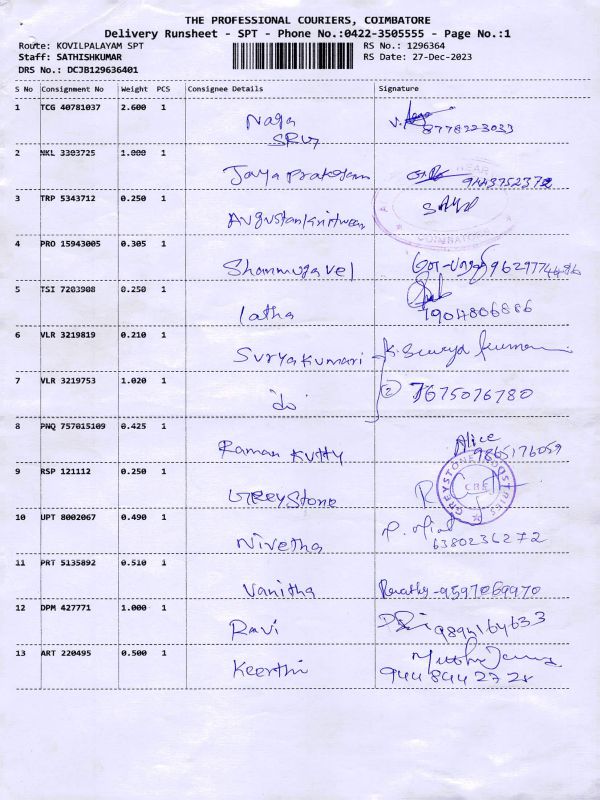 THE PROFESSIONAL COURIERS, COIMBATORE
Delivery Runsheet - SPT - Phone No.:0422-3505555 - Page No.:1
Route: KOVILPALAYAM SPT
RS No.: 1296364
Staff: SATHISHKUMAR
RS Date: 27-Dec-2023
DRS No.: DCJB129636401
S No Consignment No Weight PCS Consignee Details Signature
1 TCG 40781037 2.600 1 Naga
SRU7
8778223033
2 NKL 3303725 1.000 1 Jaya Prakasam
9443752372
3 TRP 5343712 0.250 1
COIMBATORE
4 PRO 15943005 0.305 1 Shanmugavel
9629774486
5 TSI 7203908 0.250 1 latha
7904806886
6 VLR 3219819 0.210 1 Suryakumari K. Surya Kumari
7 VLR 3219753 1.020 1 do (2) 7675076780
8 PNQ 757015109 0.425 1 Raman Kutty Alice
9865176059
9 RSP 121112 0.250 1 GREYStone
GREYSTONE INDUSTRIES
CBE
10 UPT 8002067 0.490 1 Nivetha
6380236272
11 PRT 5135892 0.510 1 Vanitha Revathy - 9597069970
12 DPM 427771 1.000 1 Ravi
9894164633
13 ART 220495 0.500 1 Keerthi
9448442728